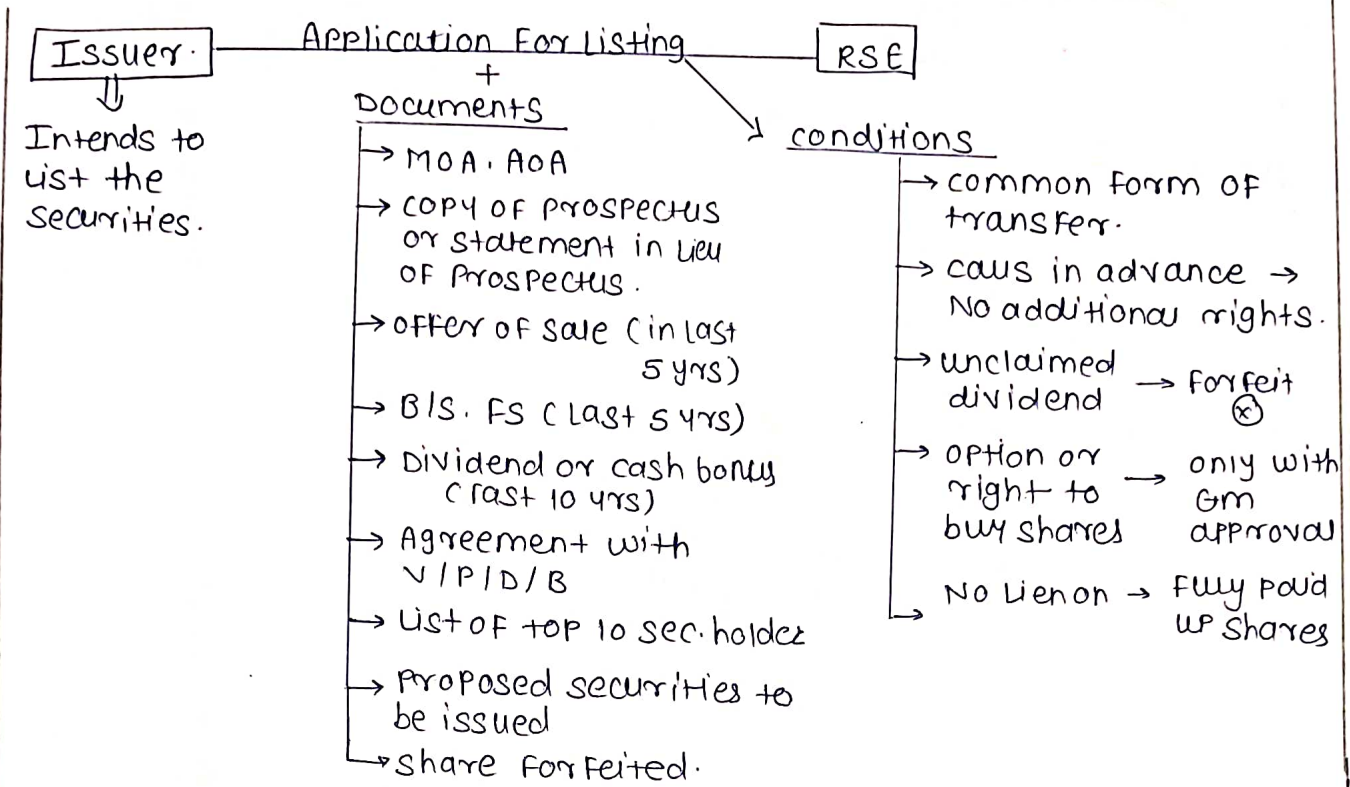 Issuer.
Application For Listing
RSE
+
Intends to
list the
securities.
Documents
→ MOA, AOA
→ copy of prospectus
or statement in lieu
of Prospectus.
→ offer of sale (in last
5 yrs)
→ B/S. FS (Last 5 yrs)
→ Dividend or cash bonus
(last 10 yrs)
→ Agreement with
V/P/D/B
→ List of top 10 sec. holder
→ Proposed securities to
be issued
→ share Forfeited.
conditions
→ common form of
transfer.
→ calls in advance →
No additional rights.
→ unclaimed
dividend → forfeit
ⓧ
→ option or
right to
buy shares → only with
Gm
approval
→ No Lien on → Fully paid
up shares